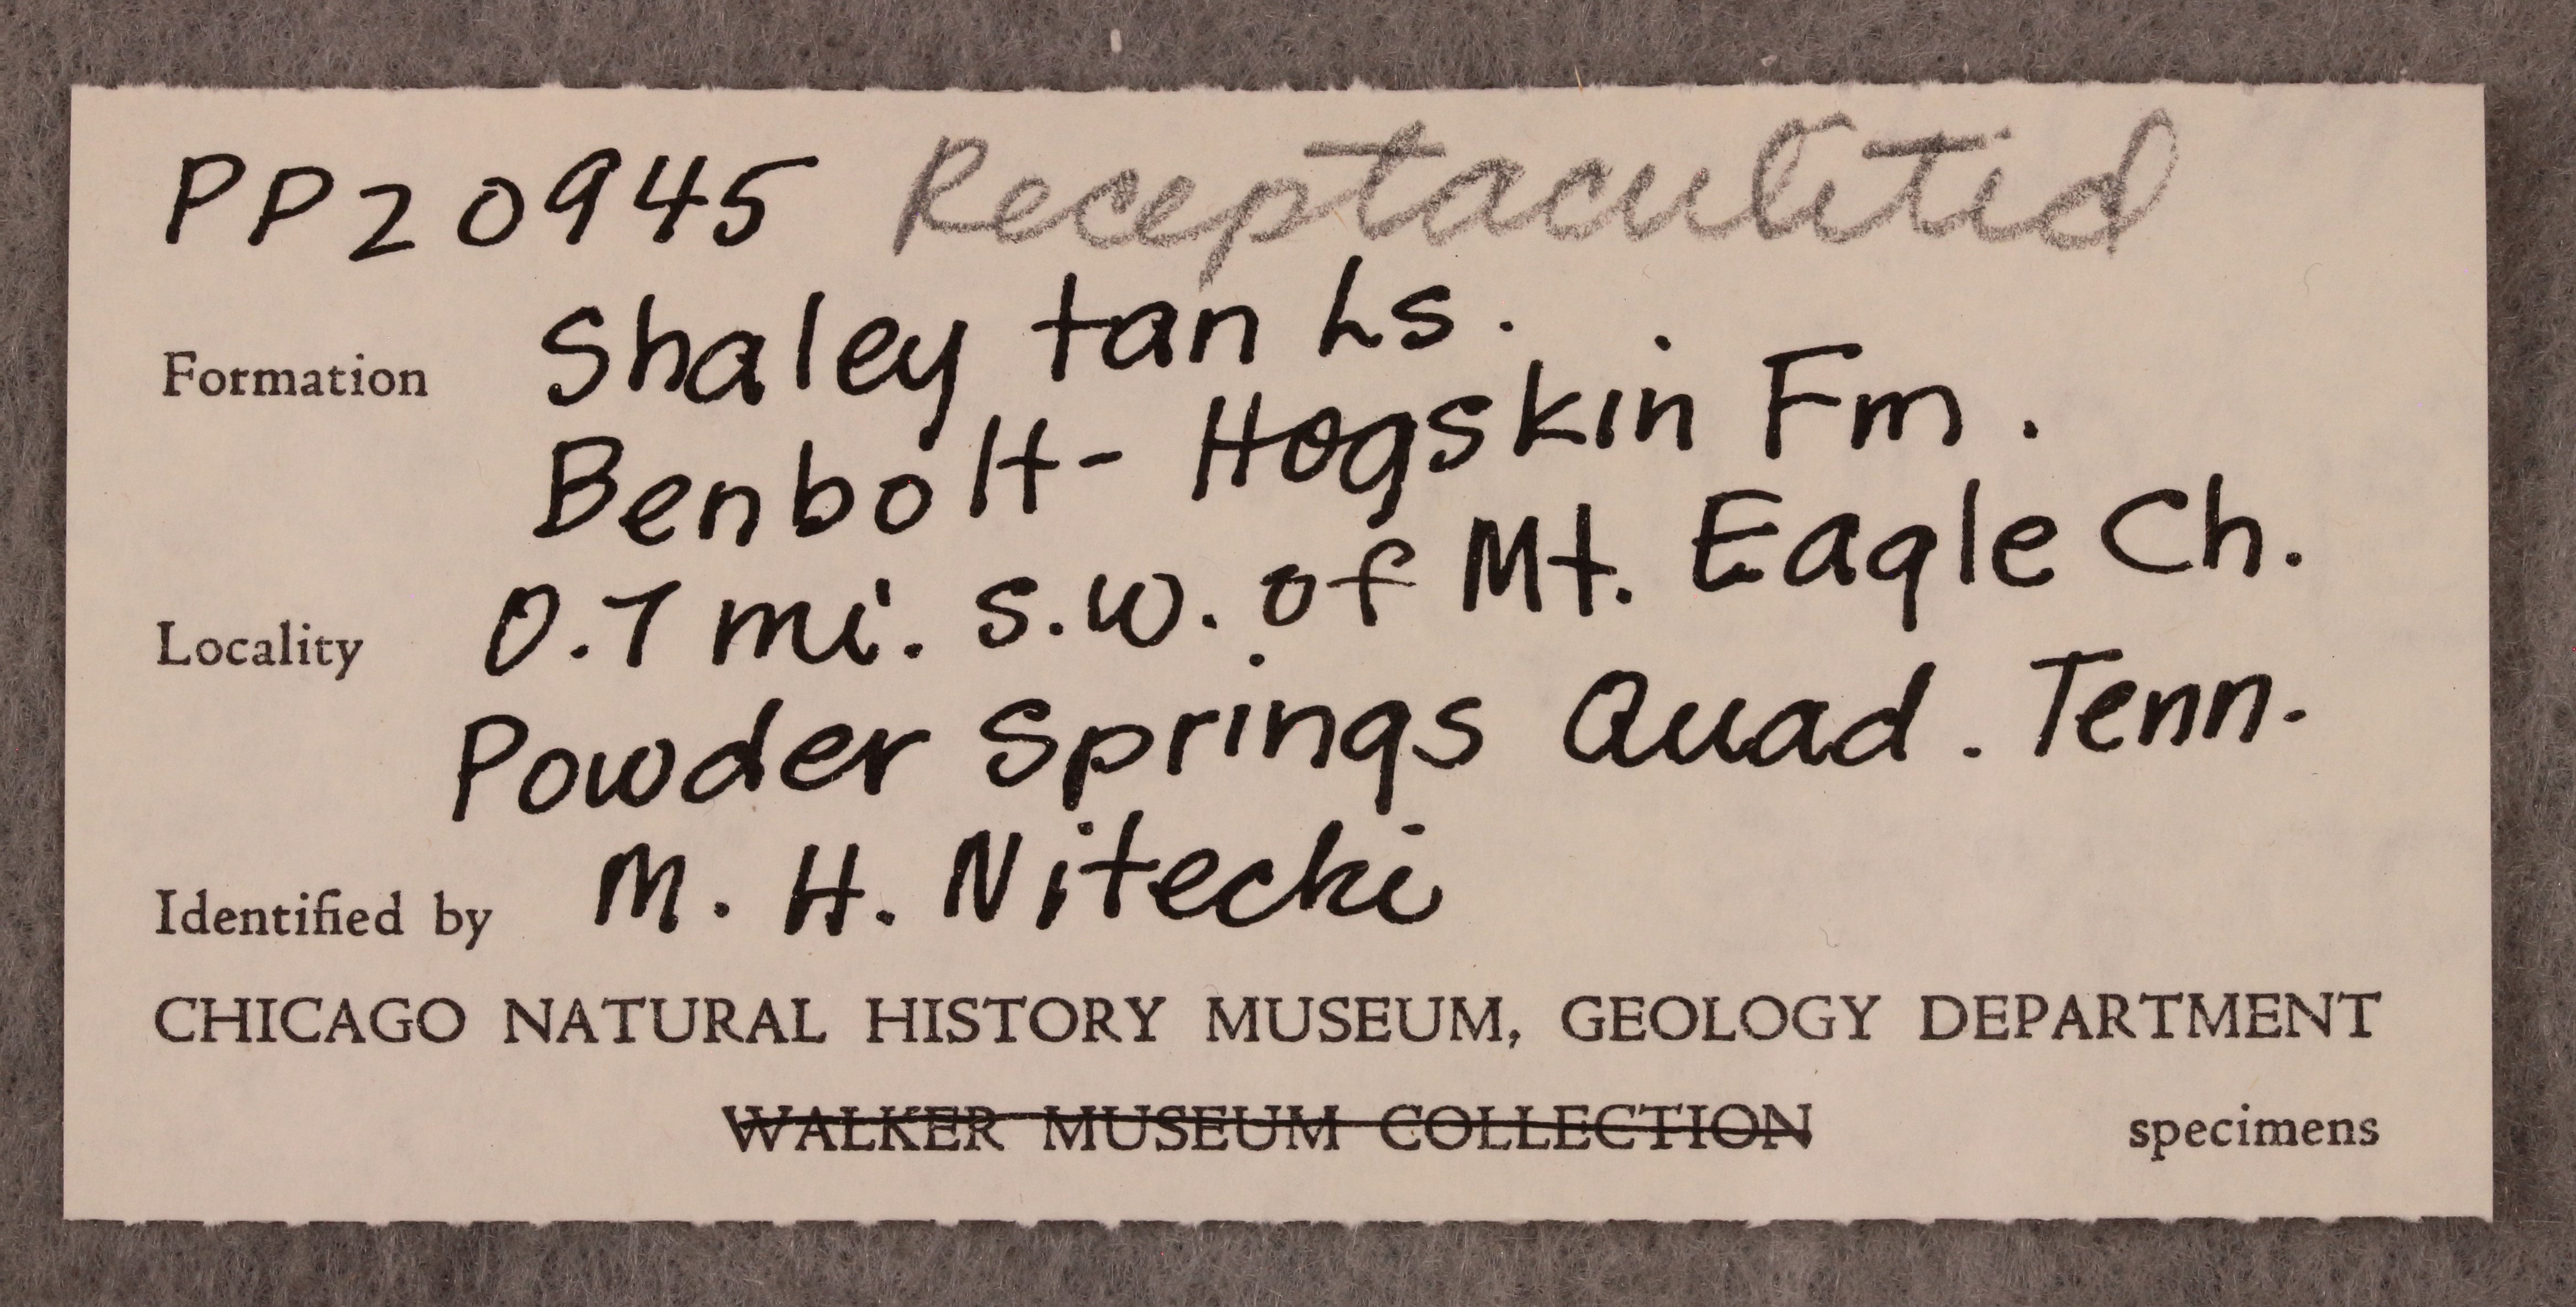 PP20945 Receptaculitid
Formation Shaley tan Ls.
Benbolt - Hogskin Fm.
Locality 0.7 mi. s.w. of Mt. Eagle Ch.
Powder Springs Quad. Tenn.
Identified by M. H. Nitecki
CHICAGO NATURAL HISTORY MUSEUM, GEOLOGY DEPARTMENT
WALKER MUSEUM COLLECTION specimens